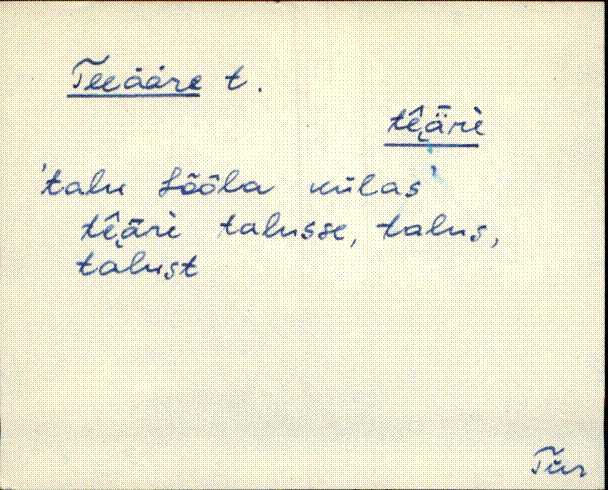 Teeääre t.
tê̬ärì̬
'talu Sõõla külas'
tê̬ärì̬ talusse, talus,
talust
Tür